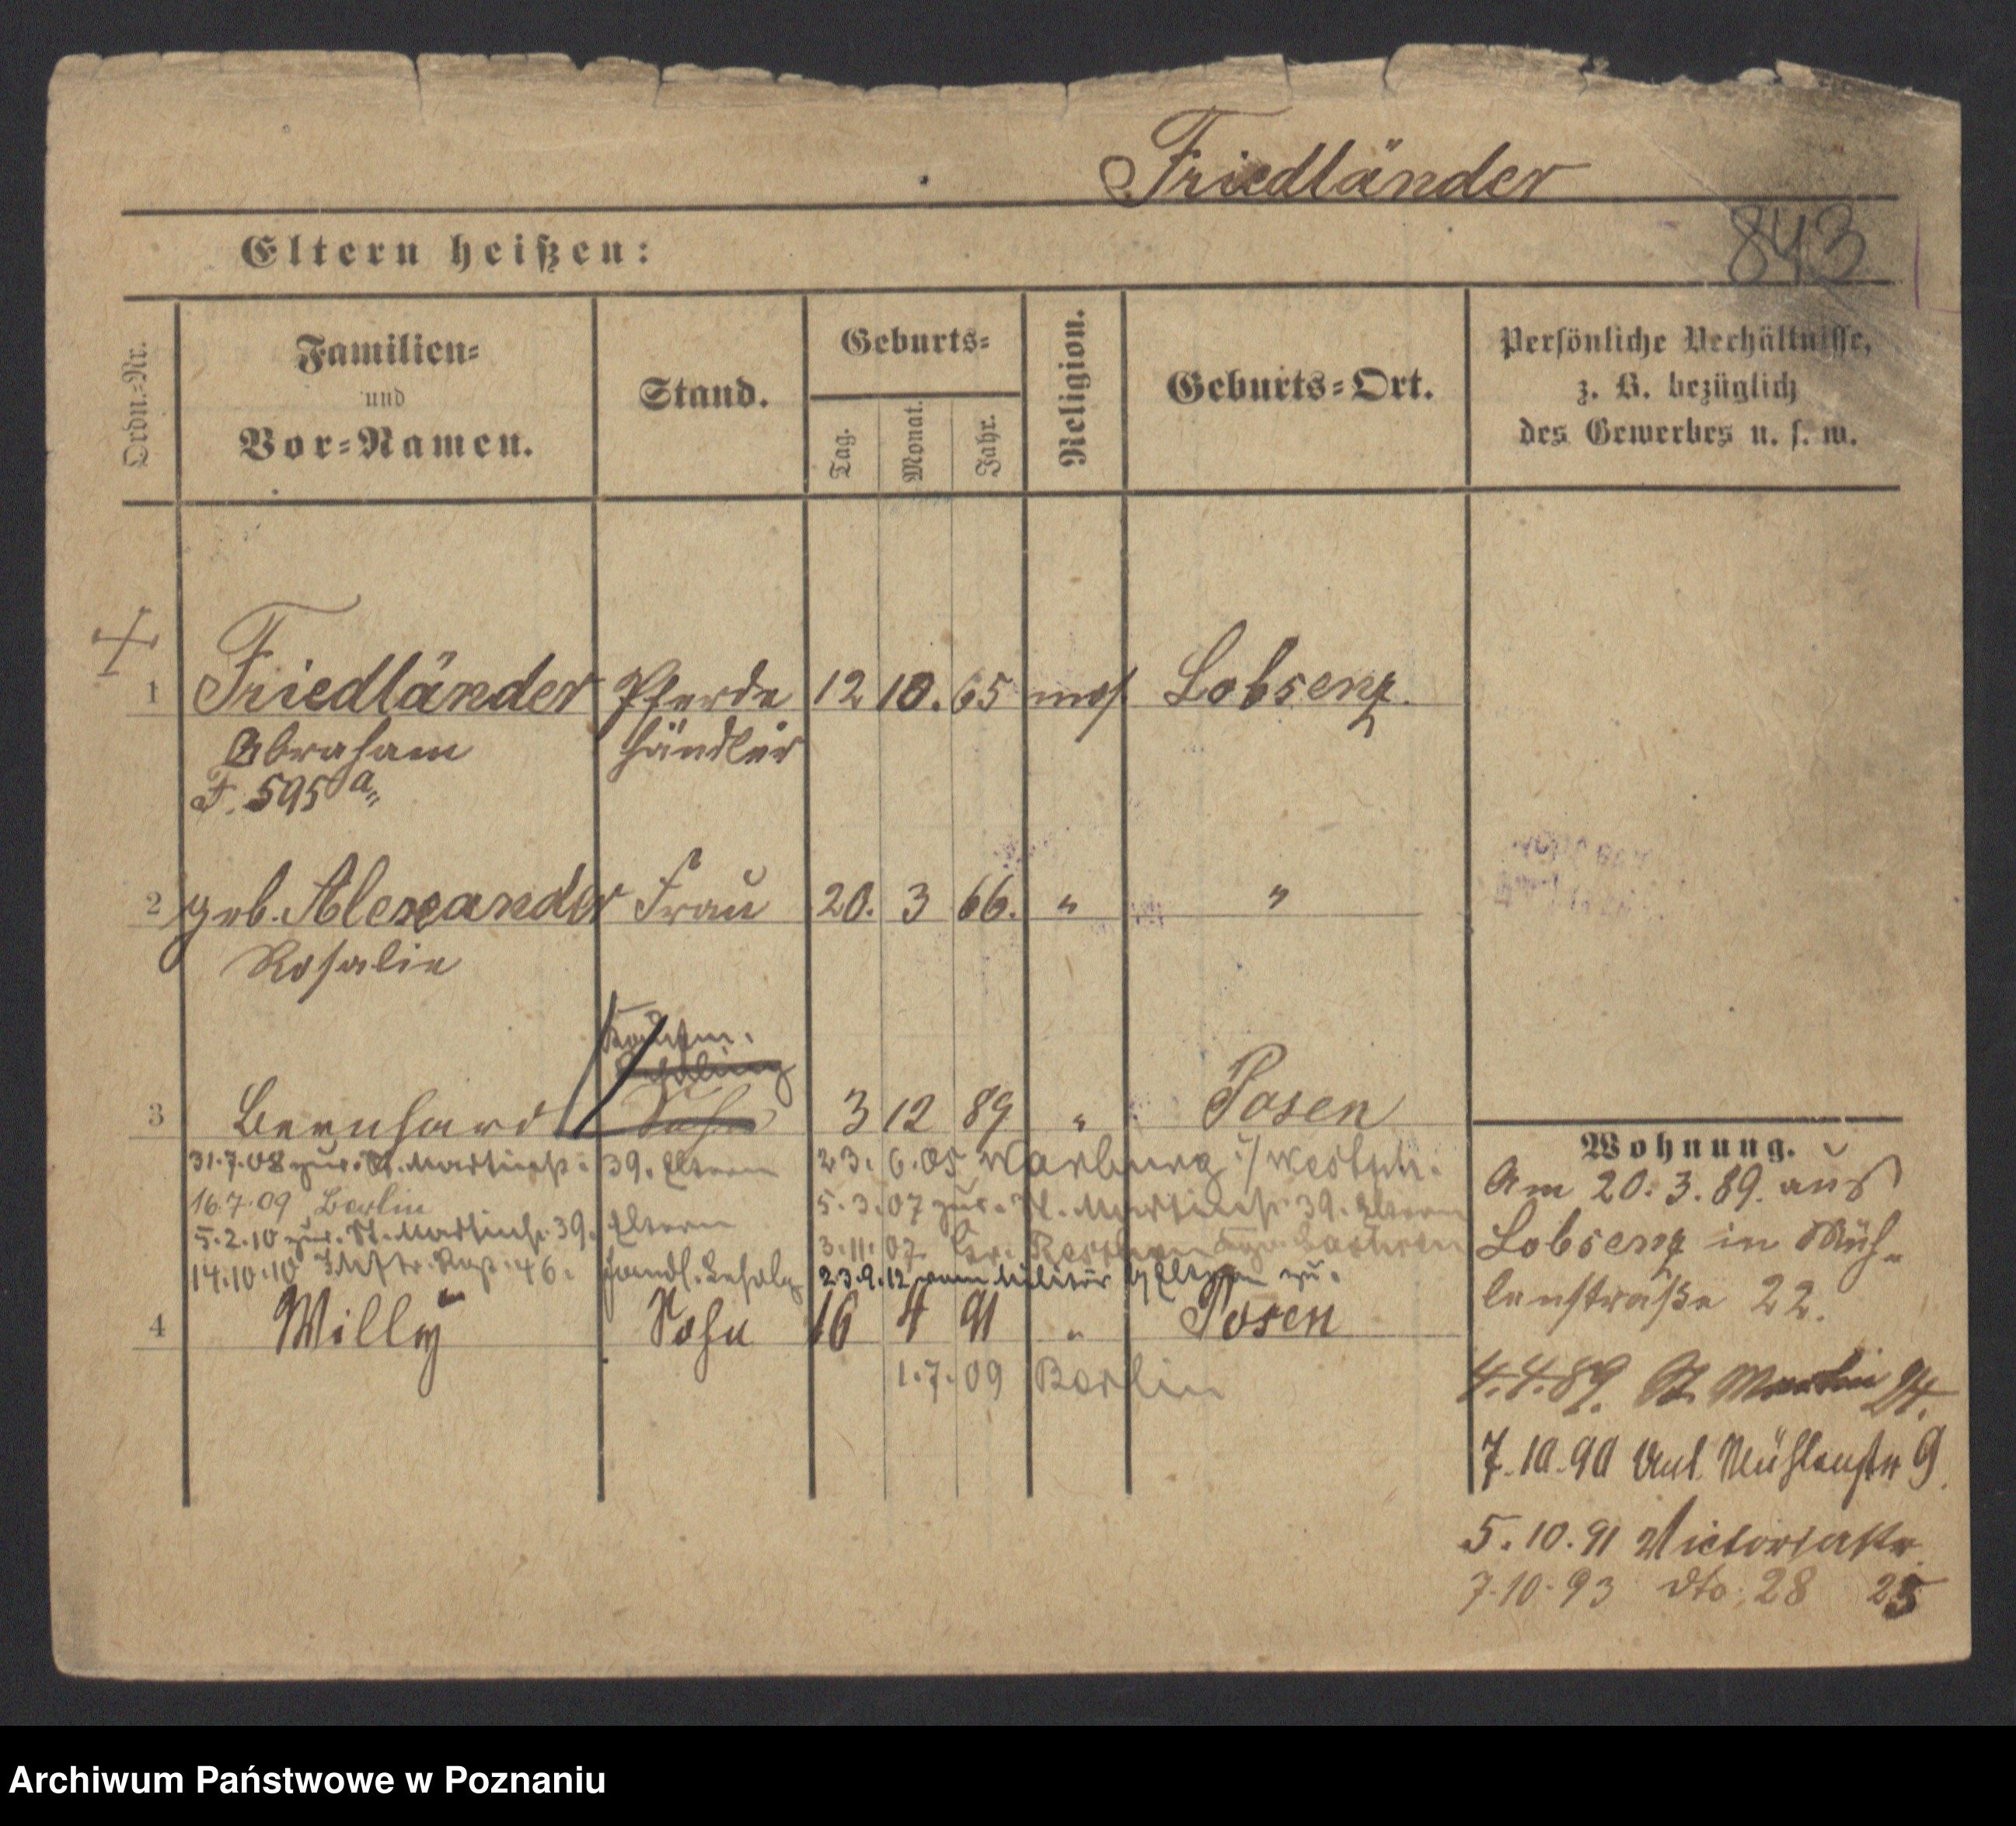 Friedländer
843
Eltern heißen:
Ordn.=Nr.
Familien=
und
Vor=Namen.
Stand.
Geburts=
Tag.
Monat.
Jahr.
Religion.
Geburts=Ort.
Persönliche Verhältnisse,
z. B. bezüglich
des Gewerbes u. s. w.
1 Friedländer Pferde 12 10. 65 mos. Lobsenz.
Abraham händler
F. 595 a
2 geb. Alexander Frau 20. 3 66. " "
Rosalie
Kaufm.
3 Bernhard Sohn 3 12 89 " Posen
31.7.08 zur. St. Martinstr. 39. Eltern 23. 6. 05 Warburg i/Westph.
16.7.09 Berlin 5.3.07 zur. St. Martinstr. 39. Eltern
5.2.10 zur. St. Martinstr. 39. Eltern 3.11.07
14.10.10 46. Handl. 23.9.12 vom Militär Eltern zu.
4 Willy Sohn 16 4 91 " Posen
1.7.09 Berlin
Wohnung.
Am 20. 3. 89. aus
Lobsenz in Müh-
lenstraße 22.
4.4.89. St. Martin 24.
7.10.90 Mühlenstr 9.
5.10.91 Victoriastr.
7.10.93 dto. 28 25
Archiwum Państwowe w Poznaniu